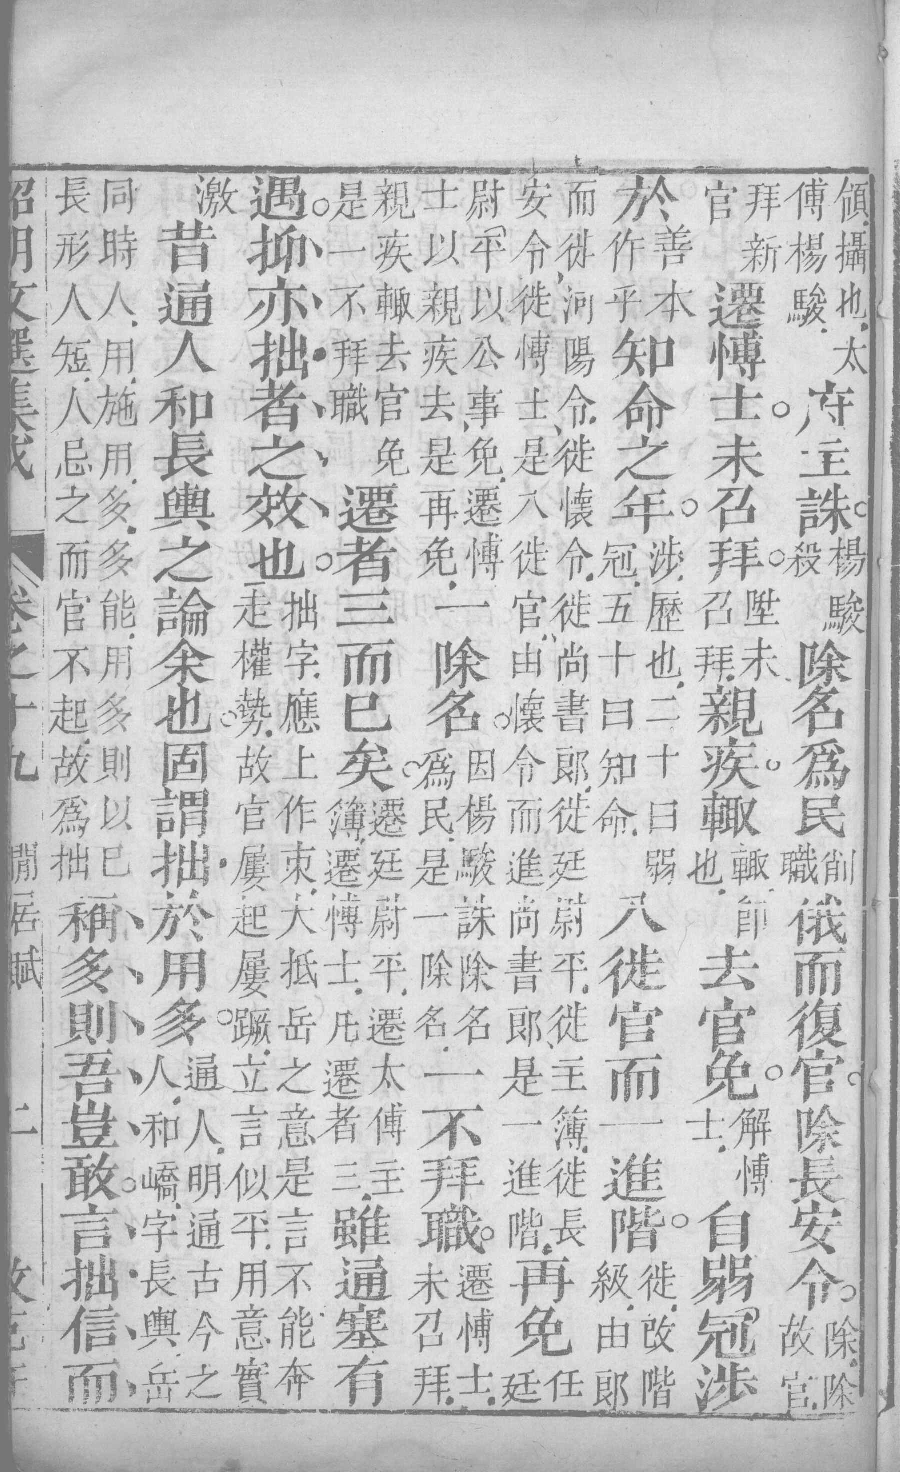 領攝也太傅楊駿府主誅楊駿殺除名爲民削職俄而復官除長安令除除故官
拜新官遷博士未召拜陞未召拜親疾輙輙即也去官免解博士自弱冠涉
於善本作乎知命之年涉歷也二十曰弱冠五十曰知命八徙官而一進階徙改階級由郎
而徙河陽令徙懷令徙尚書郎徙廷尉平徙主簿徙長安令徙博士是八徙官由懷令而進尚書郎是一進階再免任廷
尉平以公事免遷博士以親疾去是再免一除名因楊駿誅除名爲民是一除名一不拜職遷博士未召拜
親疾輙去官免是一不拜職遷者三而已矣遷廷尉平遷太傅主簿遷博士凡遷者三雖通塞有
遇抑亦拙者之效也拙字應上作束大抵岳之意是言不能奔走權勢故官屢起屢蹶立言似平用意實
激昔通人和長輿之論余也固謂拙於用多通人明通古今之人和嶠字長輿岳
同時人用施用多多能用多則以已長形人短人忌之而官不起故爲拙稱多則吾豈敢言拙信而
昭明文選集成 卷之十九 閒居賦 二